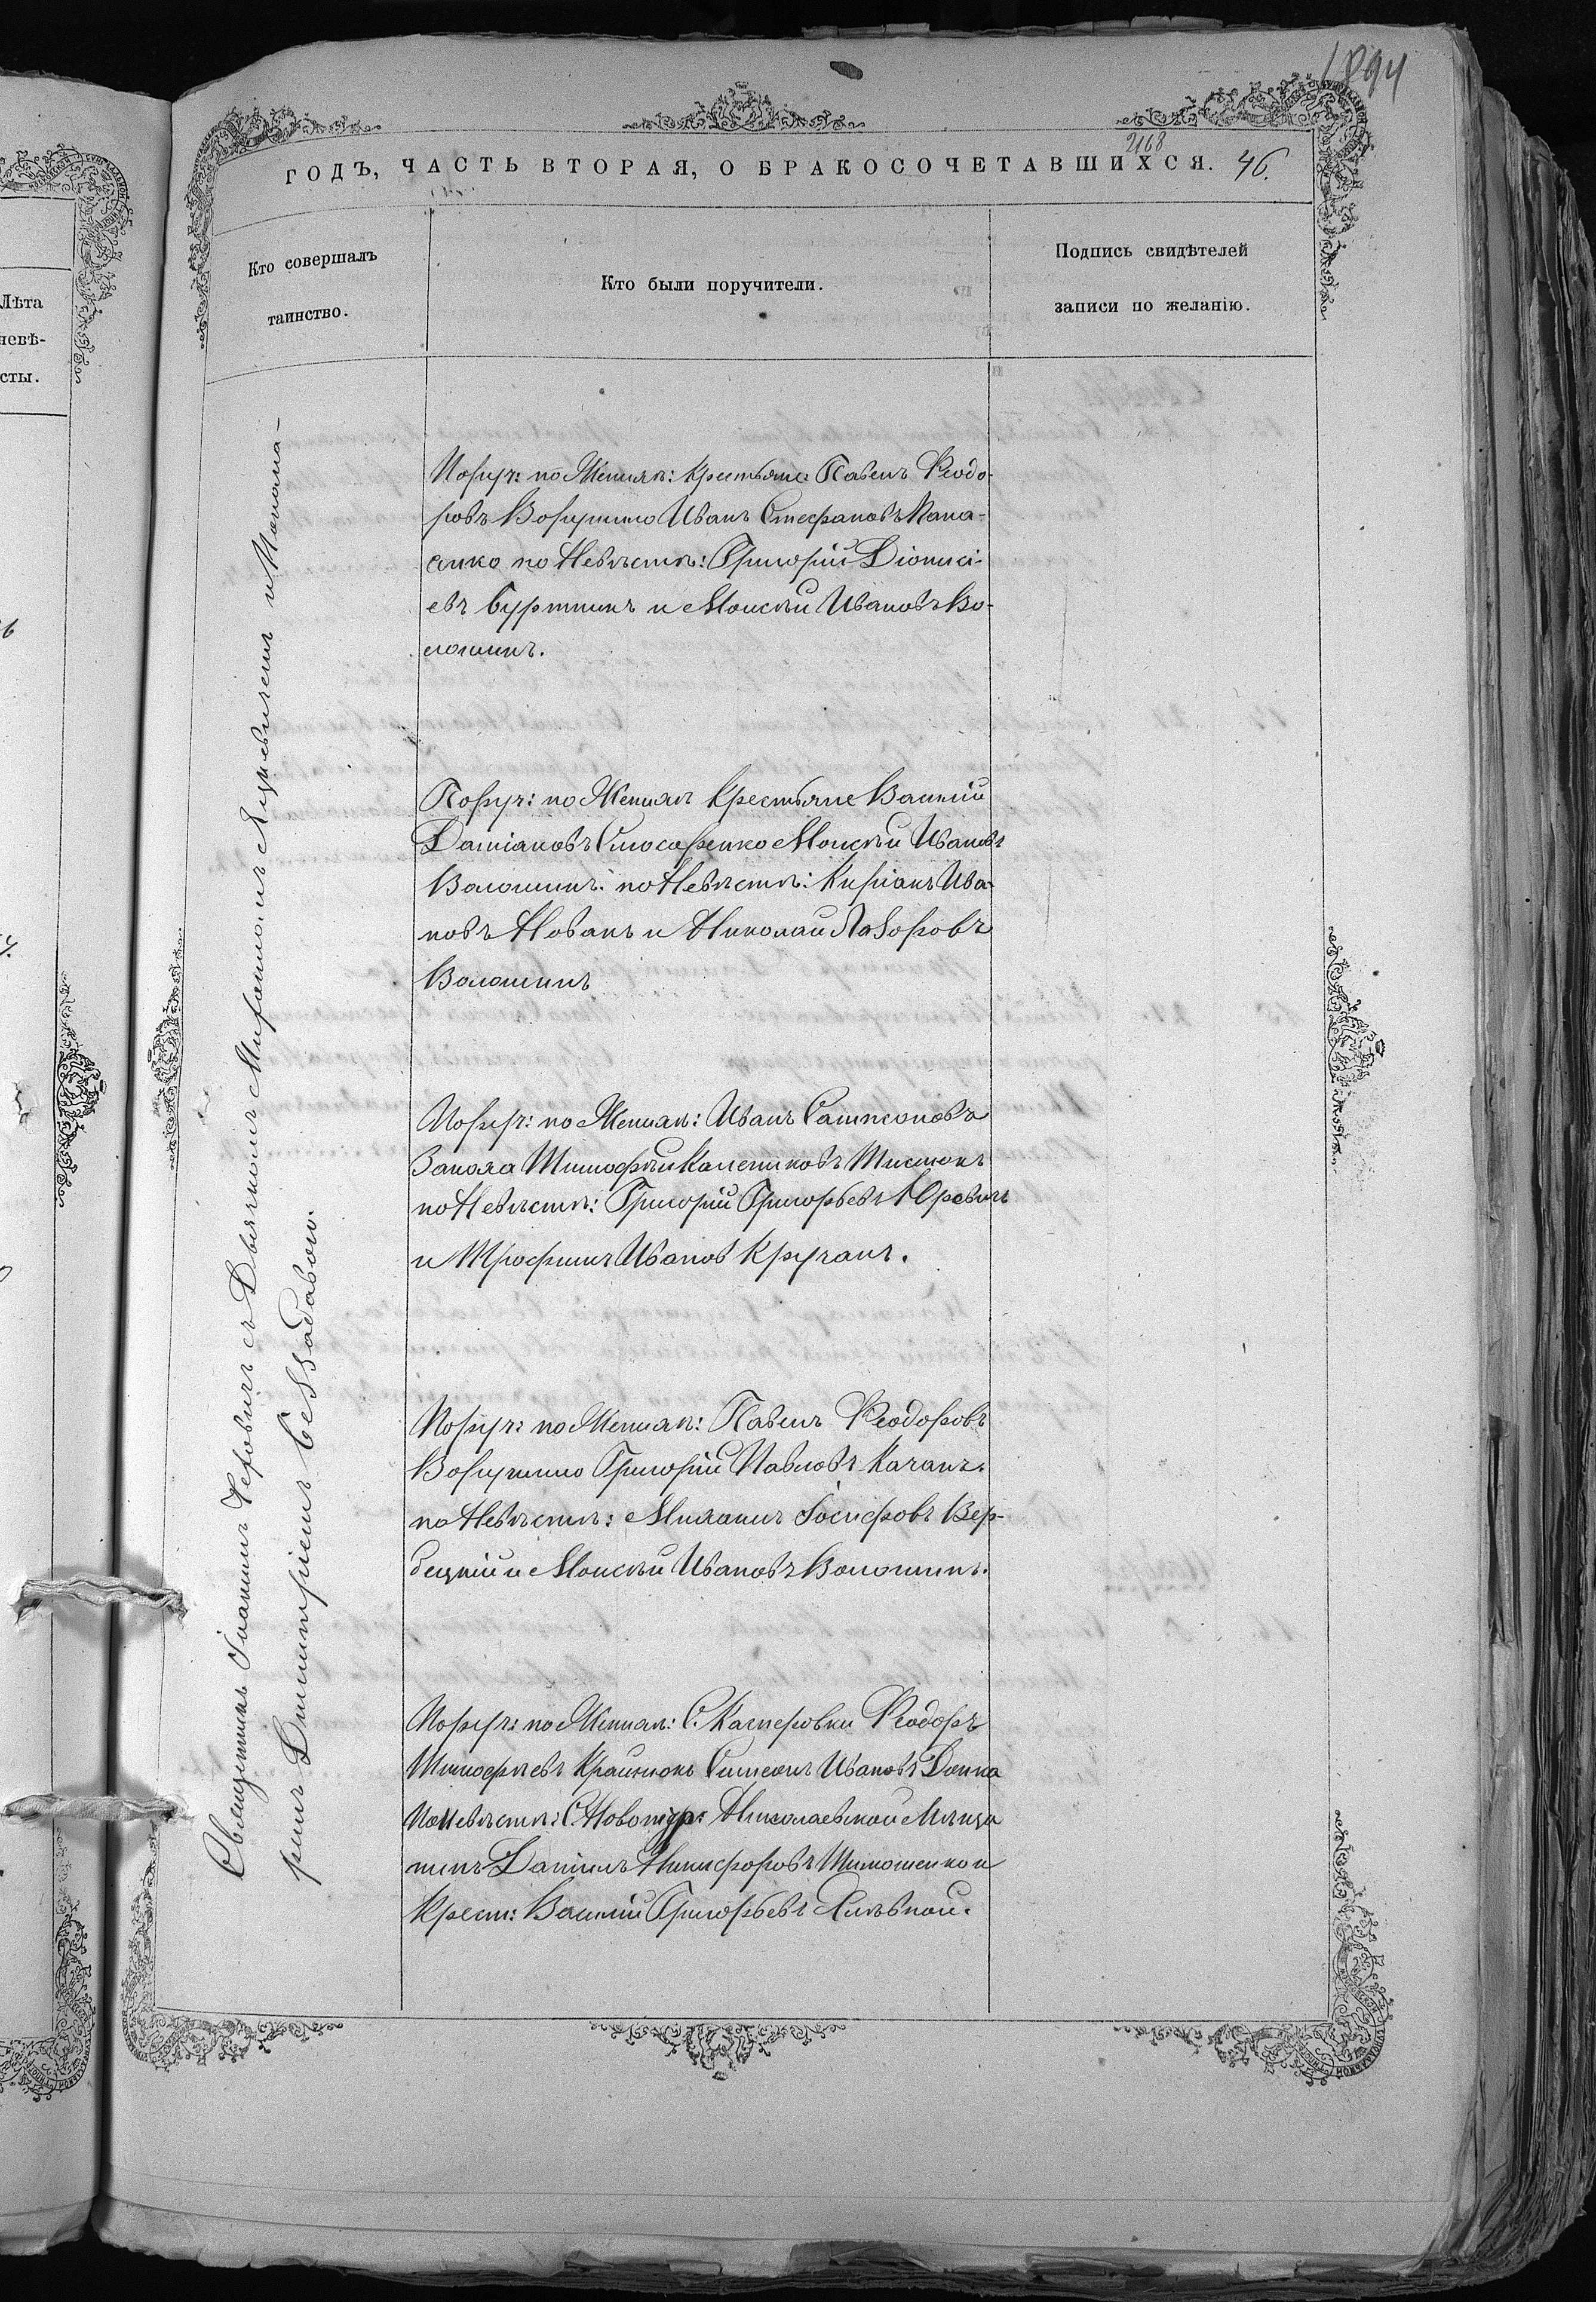 1894
2168
ГОДЪ, ЧАСТЬ ВТОРАЯ, О БРАКОСОЧЕТАВШИХСЯ. 46.
Лѣта
невѣ-
сты.
Кто совершалъ
таинство.
Кто были поручители.
Подпись свидѣтелей
записи по желанію.
Священникъ Іоаннъ съ Дьячкомъ и Понома-
ремъ Димитріемъ
Поруч: по Жених: Крестьяне: Павелъ Ѳеодо-
ровъ Иванъ Стефановъ Пана-
сико по Невѣстѣ: Григорій Діонисі-
евъ и Моисѣй Ивановъ Во-
лошинъ.
Поруч: по Женихѣ Крестьяне Василій
Даміановъ Слюсаренко Моисѣй Ивановъ
Волошинъ: по Невѣстѣ: Киріакъ Ива-
новъ Новакъ и Николай Лазоровъ
Волошинъ
Поруч: по Женихѣ: Иванъ Сампсоновъ
Тимофѣй
по Невѣстѣ: Григорій Григорьевъ Юревичъ
и Трофимъ Иванов
Поруч: по Женихѣ: Павелъ Ѳеодоровъ
Григорій Павловъ Качанъ.
по Невѣстѣ: Михаилъ Іосифовъ Вер-
бецкій и Моисѣй Ивановъ Волошинъ.
Поруч: по Женихѣ: С. Качкеровки Ѳеодоръ
Тимофѣевъ Симеонъ Ивановъ
По Невѣстѣ: С. Николаевской Мѣща
нинъ Даніилъ Никифоровъ Тимошенко и
Крест: Василій Григорьевъ